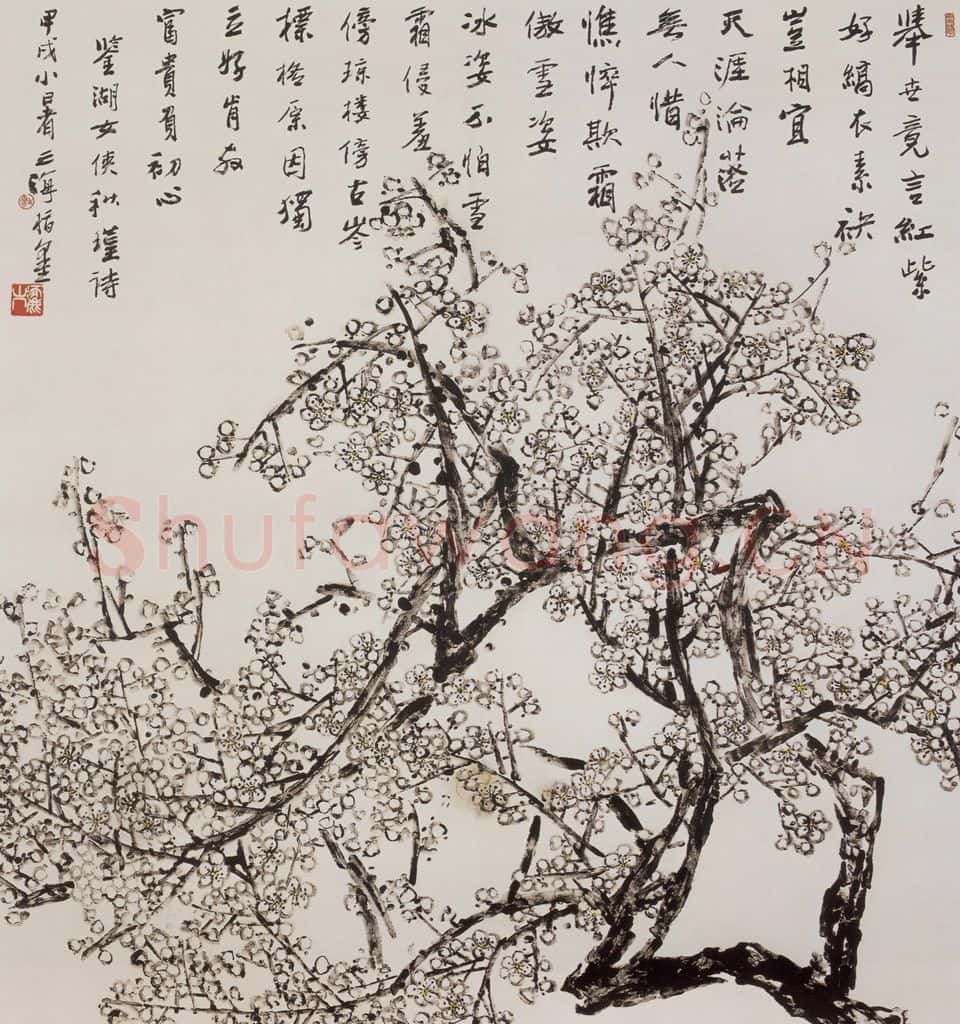 舉世竟言紅紫
好縞衣素袂
豈相宜
天涯淪落
無人惜
憔悴欺霜
傲雪姿
冰姿不怕雪
霜侵羞
傍琼樓傍古岑
標格原因獨
立好肯教
富貴負初心
鑒湖女俠秋瑾詩
甲戌小暑之海指畫
Shufawang.CN